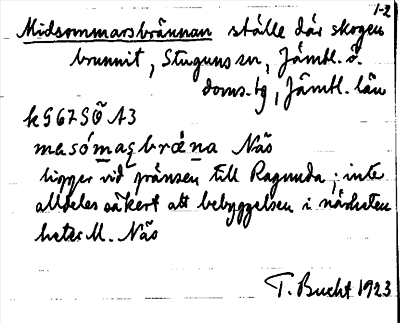 1-2
Midsommarsbrännan ställe där skogen
brunnit, Stuguns sn, Jämtl. ö.
doms.tg, Jämtl. län
k567SÖ A3
Näs
ligger vid gränsen till Ragunda; inte
alldeles säkert att bebyggelsen i närheten
heter M. Näs
T. Bucht 1923